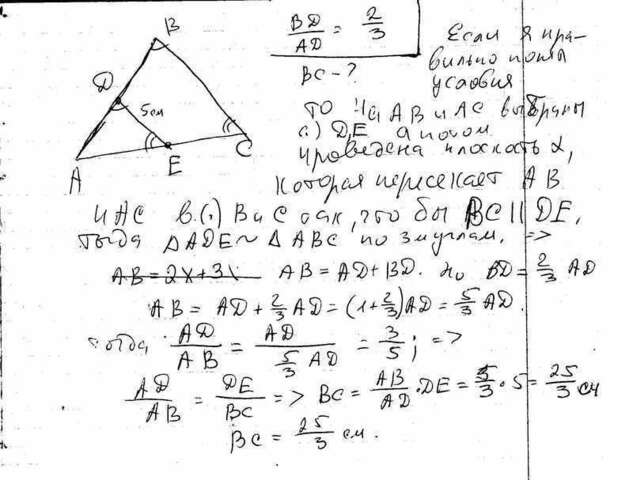 B
D
5см
A
E
C
BD/AD = 2/3
BC - ?
Если я пра-
вильно понял
условия
то на AB и AC выбраны
(.) D, E а потом
проведена плоскость α,
которая пересекает AB
и AC в (.) B и C так, что бы BC || DE,
тогда △ADE ~ △ABC по 3 углам. =>
AB = 2x + 3x AB = AD + BD. но BD = 2/3 AD
AB = AD + 2/3 AD = (1 + 2/3) AD = 5/3 AD.
тогда AD/AB = AD/(5/3 AD) = 3/5; =>
AD/AB = DE/BC => BC = AB/AD · DE = 5/3 · 5 = 25/3 см
BC = 25/3 см.